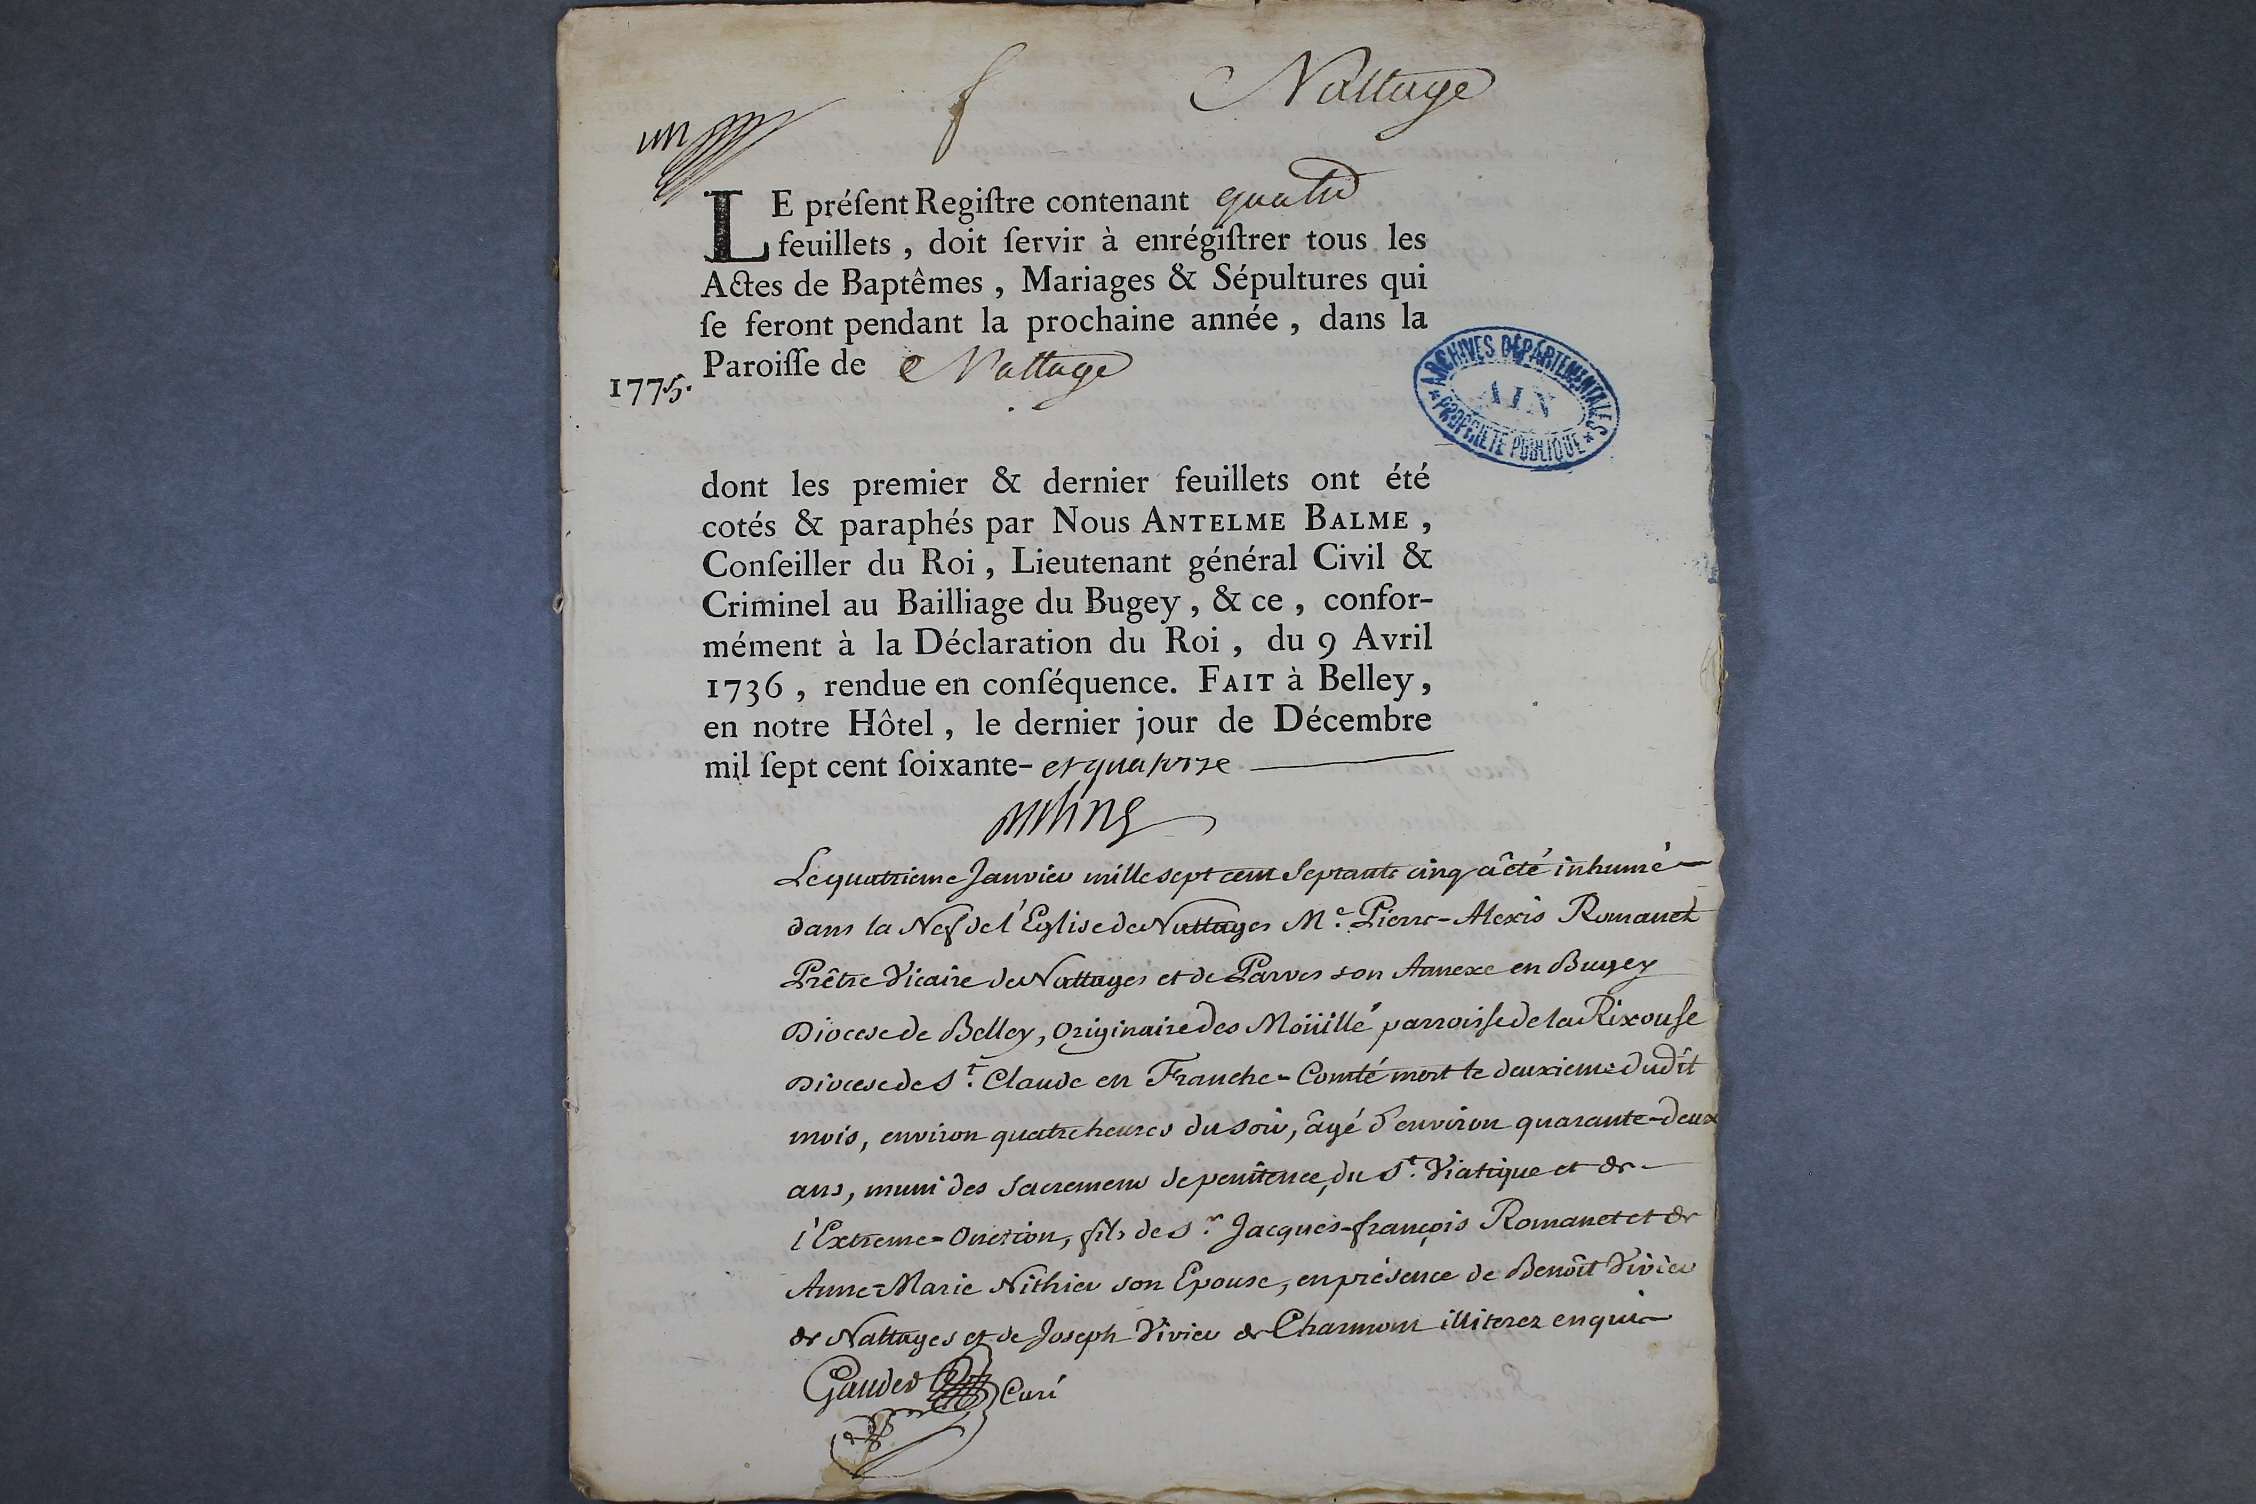 Nattage
un
LE préſent Regiſtre contenant quatre
feuillets, doit ſervir à enrégiſtrer tous les
Actes de Baptêmes, Mariages & Sépultures qui
ſe feront pendant la prochaine année, dans la
Paroiſſe de Nattage
1775.
ARCHIVES DÉPARTEMENTALES
AIN
PROPRIÉTÉ PUBLIQUE
dont les premier & dernier feuillets ont été
cotés & paraphés par Nous ANTELME BALME,
Conſeiller du Roi, Lieutenant général Civil &
Criminel au Bailliage du Bugey, & ce, confor-
mément à la Déclaration du Roi, du 9 Avril
1736, rendue en conſéquence. FAIT à Belley,
en notre Hôtel, le dernier jour de Décembre
mil ſept cent ſoixante- et quatorze
Le quatrieme Janvier mille sept cent septante cinq a été inhumé
dans la Nef de l'Eglise de Nattages Me. Pierre-Alexis Romanet
Prêtre Vicaire de Nattages et de Parves son Annexe en Bugey
Diocese de Belley, originaire des Moüillé parroisse de la Rixouse
Diocese de St. Claude en Franche-Comté mort le deuxieme dudit
mois, environ quatre heures du soir, âgé d'environ quarante-deux
ans, muni des sacremens de penitence, du St. Viatique et de
l'Extreme-Onction, fils de Sr. Jacques-françois Romanet et de
Anne-Marie Nithier son Epouse, en présence de Benoît Vivier
de Nattages et de Joseph Vivier de Charmont illiterez enquis
Gaudet Curé